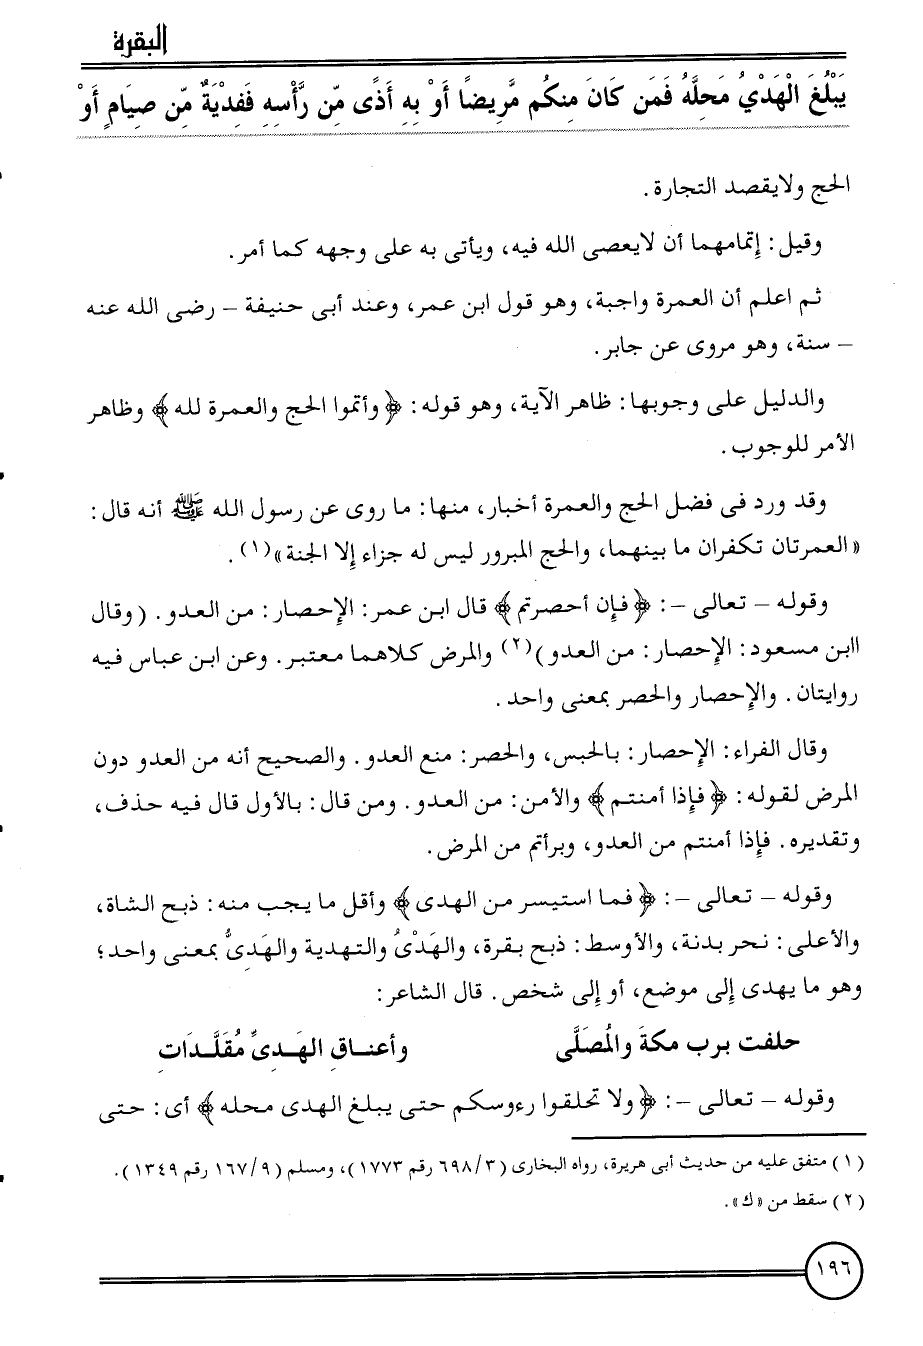 البقرة
يَبْلُغَ الْهَدْيُ مَحِلَّهُ فَمَن كَانَ مِنكُم مَّرِيضًا أَوْ بِهِ أَذًى مِّن رَّأْسِهِ فَفِدْيَةٌ مِّن صِيَامٍ أَوْ
الحج ولايقصد التجارة.
وقيل: إتمامهما أن لايعصى الله فيه، ويأتى به على وجهه كما أمر.
ثم اعلم أن العمرة واجبة، وهو قول ابن عمر، وعند أبى حنيفة – رضى الله عنه
– سنة، وهو مروى عن جابر.
والدليل على وجوبها: ظاهر الآية، وهو قوله: ﴿ وأتموا الحج والعمرة لله ﴾ وظاهر
الأمر للوجوب.
وقد ورد فى فضل الحج والعمرة أخبار، منها: ما روى عن رسول الله ﷺ أنه قال:
«العمرتان تكفران ما بينهما، والحج المبرور ليس له جزاء إلا الجنة»(١).
وقوله – تعالى –: ﴿ فإن أحصرتم ﴾ قال ابن عمر: الإحصار: من العدو. (وقال
اابن مسعود: الإحصار: من العدو)(٢) والمرض كلاهما معتبر. وعن ابن عباس فيه
روايتان. والإحصار والحصر بمعنى واحد.
وقال الفراء: الإحصار: بالحبس، والحصر: منع العدو. والصحيح أنه من العدو دون
المرض لقوله: ﴿ فإذا أمنتم ﴾ والأمن: من العدو. ومن قال: بالأول قال فيه حذف،
وتقديره. فإذا أمنتم من العدو، وبرأتم من المرض.
وقوله – تعالى –: ﴿ فما استيسر من الهدى ﴾ وأقل ما يجب منه: ذبح الشاة،
والأعلى: نحر بدنة، والأوسط: ذبح بقرة، والهَدْىُ والتهدية والهَدِىُّ بمعنى واحد؛
وهو ما يهدى إلى موضع، أو إلى شخص. قال الشاعر:
حلفت برب مكةَ والمُصَلَّى وأعنـاقِ الهَـدِىِّ مُقَلَّـدَاتِ
وقوله – تعالى –: ﴿ ولا تحلقوا رءوسكم حتى يبلغ الهدى محله ﴾ أى: حتى
(١) متفق عليه من حديث أبى هريرة، رواه البخارى (٦٩٨/٣ رقم ١٧٧٣)، ومسلم (١٦٧/٩ رقم ١٣٤٩).
(٢) سقط من «ك».
١٩٦